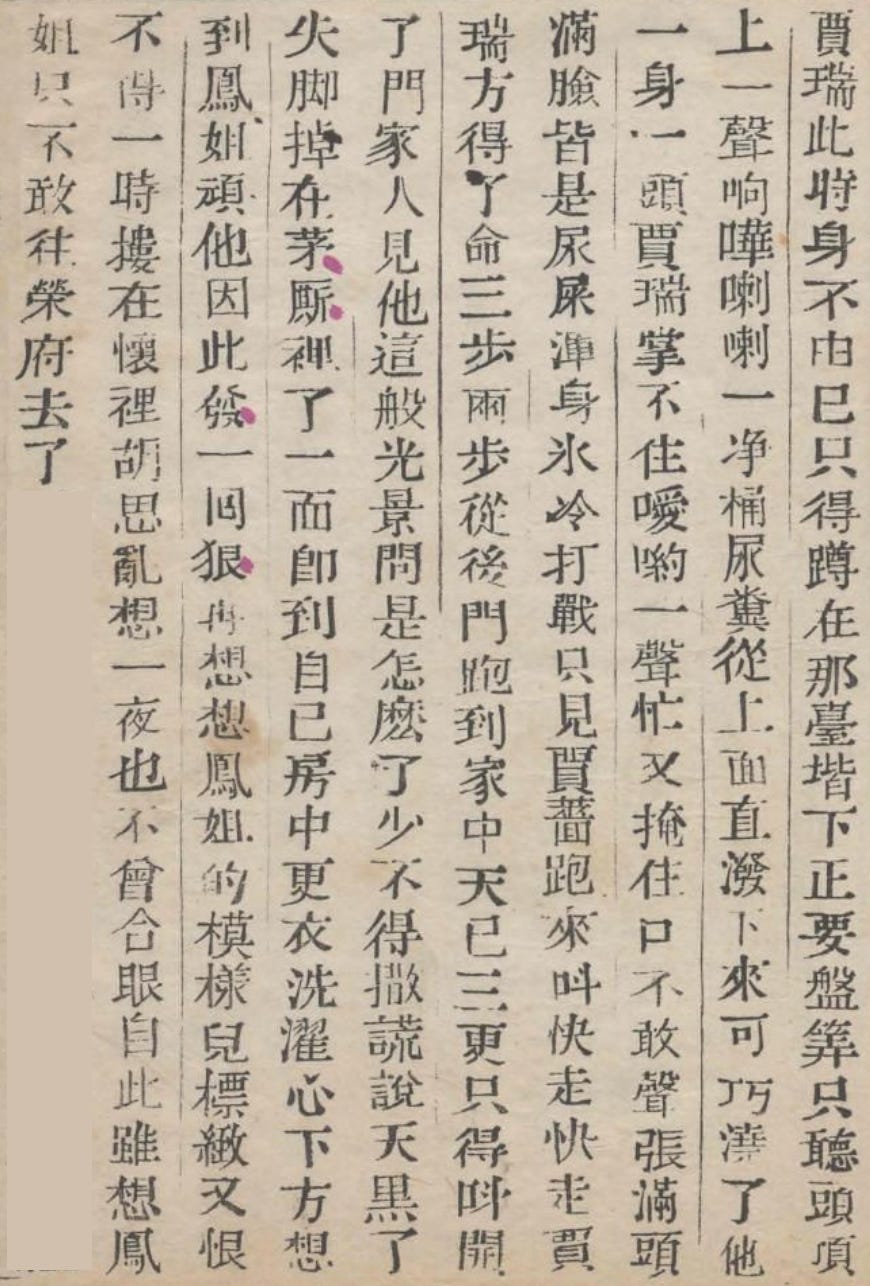 賈瑞此時身不由己只得蹲在那臺堦下正要盤筭只聽頭頂
上一聲响嘩喇喇一净桶尿糞從上面直潑下來可巧澆了他
一身一頭賈瑞掌不住噯喲一聲忙又掩住口不敢聲張滿頭
滿臉皆是尿屎渾身氷冷打戰只見賈薔跑來呌快走快走賈
瑞方得了命三步兩步從後門跑到家中天已三更只得呌開
了門家人見他這般光景問是怎麽了少不得撒謊說天黑了
失脚掉在茅厠裡了一面卽到自己房中更衣洗濯心下方想
到鳳姐頑他因此發一回狠再想想鳳姐的模樣兒標緻又恨
不得一時摟在懷裡胡思亂想一夜也不曾合眼自此雖想鳳
姐只不敢往榮府去了